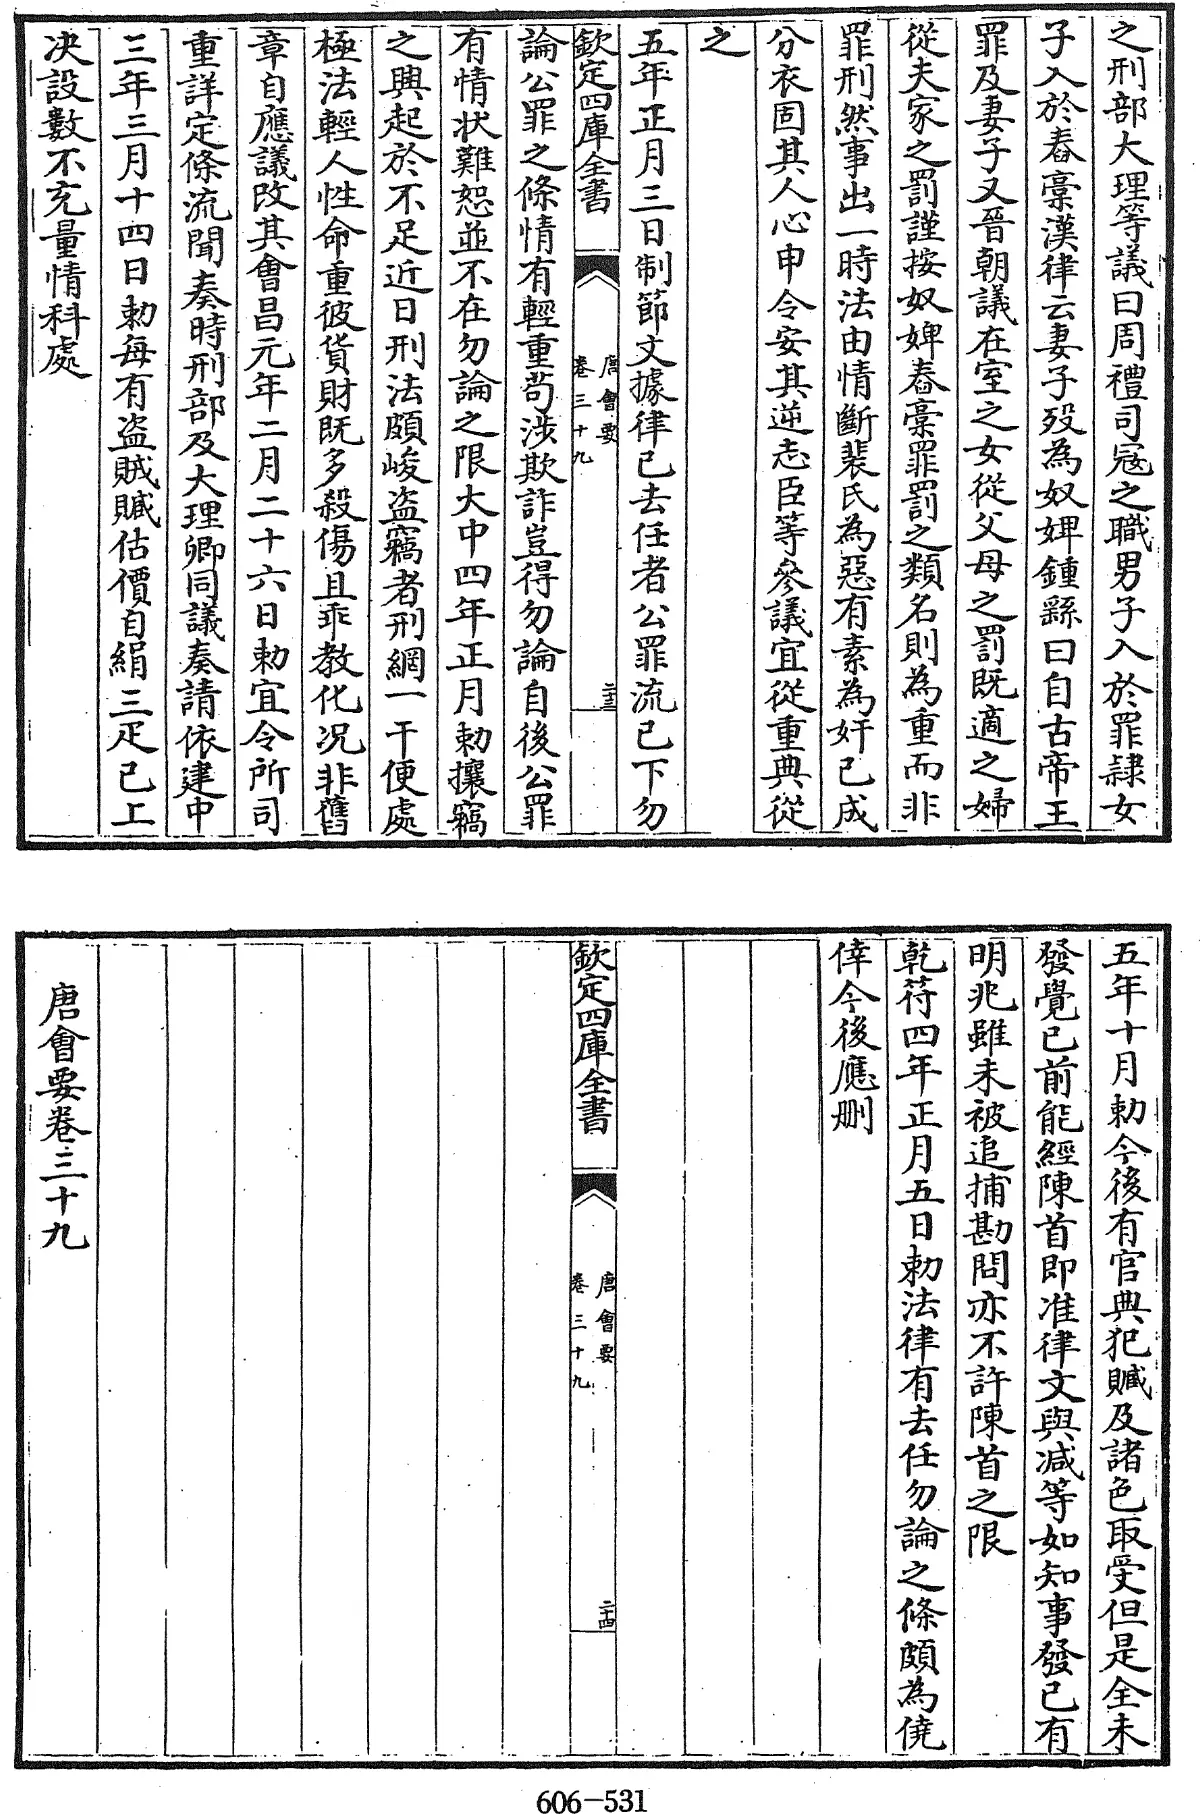 之刑部大理等議曰周禮司寇之職男子入於罪隸女
子入於舂稾漢律云妻子殁為奴婢鍾繇曰自古帝王
罪及妻子又晉朝議在室之女從父母之罰既適之婦
從夫家之罰謹按奴婢舂稾罪罰之類名則為重而非
罪刑然事出一時法由情斷裴氏為惡有素為奸已成
分衣固其人心申令安其逆志臣等參議宜從重典從
之
五年正月三日制節文據律已去任者公罪流已下勿
欽定四庫全書
唐會要
卷三十九
二十三
論公罪之條情有輕重苟涉欺詐豈得勿論自後公罪
有情狀難恕並不在勿論之限大中四年正月勅攘竊
之興起於不足近日刑法頗峻盜竊者刑網一干便處
極法輕人性命重彼貨財既多殺傷且乖教化況非舊
章自應議改其會昌元年二月二十六日勅宜令所司
重詳定條流聞奏時刑部及大理卿同議奏請依建中
三年三月十四日勅每有盜賊贓估價自絹三疋已上
决設數不充量情科處
五年十月勅今後有官典犯贓及諸色取受但是全未
發覺已前能經陳首即准律文與減等如知事發已有
明兆雖未被追捕勘問亦不許陳首之限
乾符四年正月五日勅法律有去任勿論之條頗為僥
倖今後應刪
欽定四庫全書
唐會要
卷三十九
二十四
唐會要卷三十九
606-531